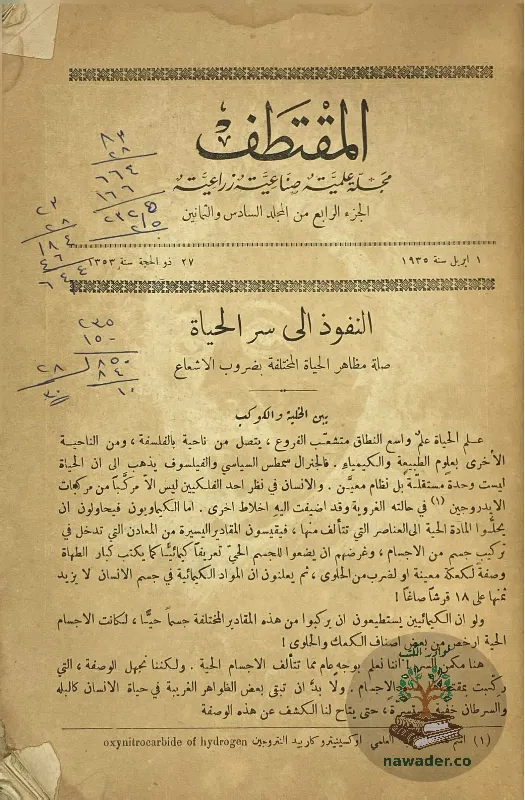 المقتطف
مجلة علمية صناعية زراعية
الجزء الرابع من المجلد السادس والثمانين
١ ابريل سنة ١٩٣٥
٢٧ ذو الحجة سنة ١٣٥٣
النفوذ الى سر الحياة
صلة مظاهر الحياة المختلفة بضروب الاشعاع
بين الخلية والكوكب
علم الحياة علم واسع النطاق متشعب الفروع ، يتصل من ناحية بالفلسفة ، ومن الناحية
الأخرى بعلوم الطبيعة والكيمياء . فالجنرال سمطس السياسي والفيلسوف يذهب الى ان الحياة
ليست وحدة مستقلة بل نظام معين . والانسان في نظر احد الفلكيين ليس الا مركباً من مركبات
الايدروجين (١) في حالته الغروية وقد اضيفت اليه اخلاط اخرى . اما الكيماويون فيحاولون ان
يحللوا المادة الحية الى العناصر التي تتألف منها ، فيقيسون المقادير اليسيرة من المعادن التي تدخل في
تركيب جسم من الاجسام ، وغرضهم ان يضعوا للجسم الحي تعريفاً كيمائياً كما يكتب كبار الطهاة
وصفة لكعكة معينة او لضرب من الحلوى ، ثم يعلنون ان المواد الكيمائية في جسم الانسان لا يزيد
ثمنها على ١٨ قرشاً صاغاً !
ولو ان الكيمائيين يستطيعون ان يركبوا من هذه المقادير المختلفة جسماً حيًّا ، لكانت الاجسام
الحية ارخص من بعض اصناف الكعك والحلوى !
هنا مكمن السر ! اننا نعلم بوجه عام مما تتألف الاجسام الحية . ولكننا نجهل الوصفة ، التي
ركبت الاجسام . ولا بدَّ ان تبقى بعض الظواهر الغريبة في حياة الانسان كالبله
والسرطان خفية ، حتى يتاح لنا الكشف عن هذه الوصفة
(١) العلمي اوكسينيتروكاربيد النتروجين oxynitrocarbide of hydrogen
٨٣
٢٨
٦٦٤
١٦٦
٢٣
٢٨
١٨٤
٢٣٥
١٥٠
٨٥٠
٨٤٠
١٠
٢٨
nawader.co